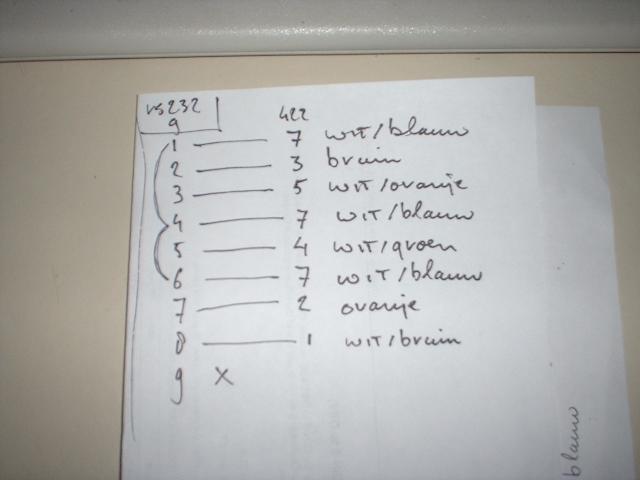 rs232 422
9
1 7 wit/blauw
2 3 bruin
3 5 wit/oranje
4 7 wit/blauw
5 4 wit/groen
6 7 wit/blauw
7 2 oranje
8 1 wit/bruin
9 x
blauw